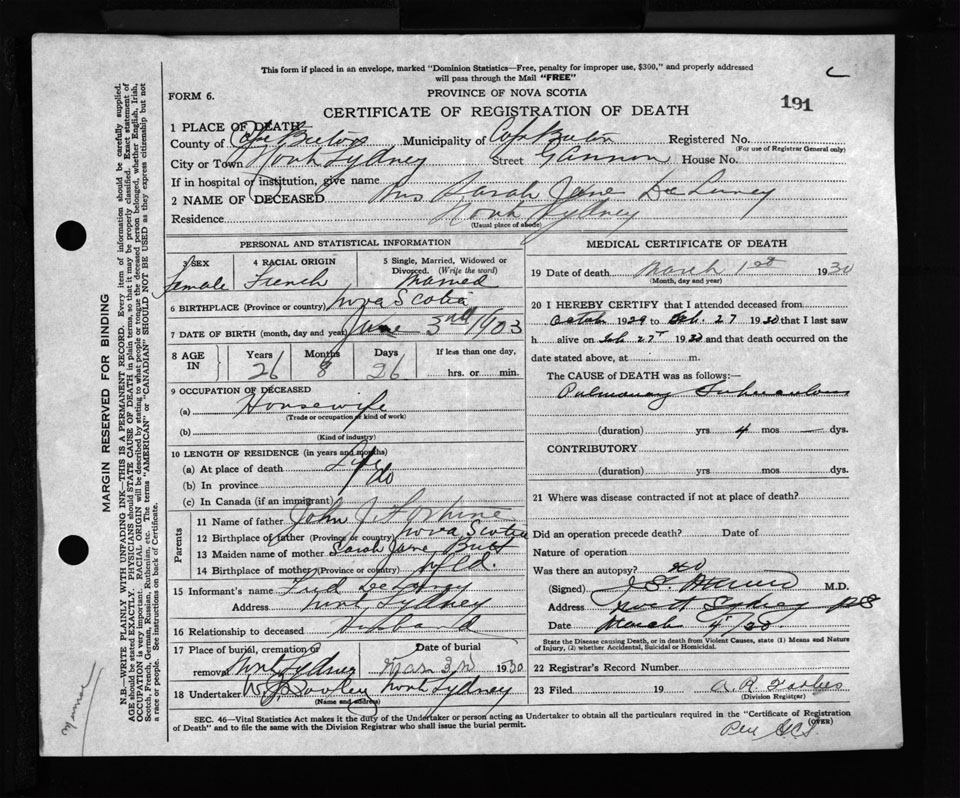 This form if placed in an envelope, marked "Dominion Statistics—Free, penalty for improper use, $300," and properly addressed
will pass through the Mail "FREE"
FORM 6.
PROVINCE OF NOVA SCOTIA
CERTIFICATE OF REGISTRATION OF DEATH
191
1 PLACE OF DEATH
County of Cape Breton Municipality of Cape Breton Registered No.
(For use of Registrar General only)
City or Town North Sydney Street Gannon House No.
If in hospital or institution, give name
2 NAME OF DECEASED Mrs Sarah Jane De Laney
Residence North Sydney
(Usual place of abode)
PERSONAL AND STATISTICAL INFORMATION
3 SEX 4 RACIAL ORIGIN 5 Single, Married, Widowed or
Divorced. (Write the word)
Female French Married
6 BIRTHPLACE (Province or country) Nova Scotia
7 DATE OF BIRTH (month, day and year) June 3rd 1903
8 AGE IN Years Months Days If less than one day,
26 8 26 hrs. or min.
9 OCCUPATION OF DECEASED
(a) Housewife
(Trade or occupation or kind of work)
(b)
(Kind of industry)
10 LENGTH OF RESIDENCE (in years and months)
(a) At place of death Life
(b) In province do
(c) In Canada (if an immigrant)
Parents
11 Name of father John J.
12 Birthplace of father (Province or country) Nova Scotia
13 Maiden name of mother Sarah Jane Butt
14 Birthplace of mother (Province or country) Nfld.
15 Informant's name Fred De Laney
Address North Sydney
16 Relationship to deceased Husband
17 Place of burial, cremation or Date of burial
removal North Sydney March 3rd 1930
18 Undertaker W. J. Dooley North Sydney
(Name and address)
MEDICAL CERTIFICATE OF DEATH
19 Date of death March 1st 1930
(Month, day and year)
20 I HEREBY CERTIFY that I attended deceased from
October 1929 to Feb. 27 1930 that I last saw
h alive on Feb 27 1930 and that death occurred on the
date stated above, at m.
The CAUSE OF DEATH was as follows:—
Pulmonary Tuberculosis
(duration) yrs 4 mos — dys.
CONTRIBUTORY
(duration) yrs. mos. dys.
21 Where was disease contracted if not at place of death?
Did an operation precede death? Date of
Nature of operation
Was there an autopsy? no
(Signed) M.D.
Address North Sydney NS
Date March 4 30
State the Disease causing Death, or in death from Violent Causes, state (1) Means and Nature
of Injury, (2) whether Accidental, Suicidal or Homicidal.
22 Registrar's Record Number
23 Filed 19 A. R. Forbes
(Division Registrar)
SEC. 46—Vital Statistics Act makes it the duty of the Undertaker or person acting as Undertaker to obtain all the particulars required in the "Certificate of Registration
of Death" and to file the same with the Division Registrar who shall issue the burial permit.
(OVER)
Per
MARGIN RESERVED FOR BINDING
N.B.—WRITE PLAINLY WITH UNFADING INK—THIS IS A PERMANENT RECORD. Every item of information should be carefully supplied.
AGE should be stated EXACTLY. PHYSICIANS should STATE CAUSE OF DEATH in plain terms, so that it may be properly classified. Exact statement of
OCCUPATION is very important. RACIAL ORIGIN will be described by stating to what people or tongue the deceased person belonged, whether English, Irish,
Scotch, French, German, Russian, Ruthenian, etc. The terms "AMERICAN" or "CANADIAN" SHOULD NOT BE USED as they express citizenship but not
a race or people. See instructions on back of Certificate.